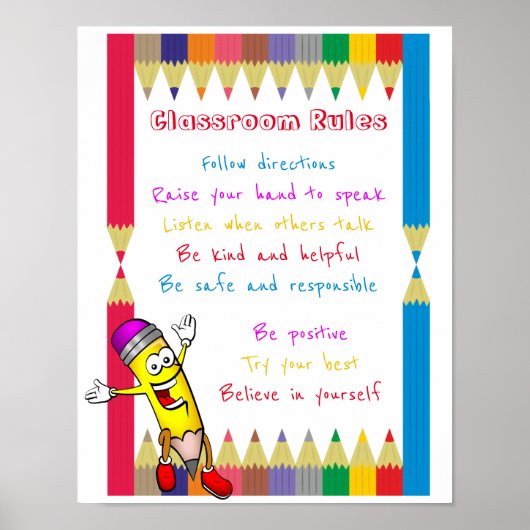 Classroom Rules
Follow directions
Raise your hand to speak
Listen when others talk
Be kind and helpful
Be safe and responsible
Be positive
Try your best
Believe in yourself